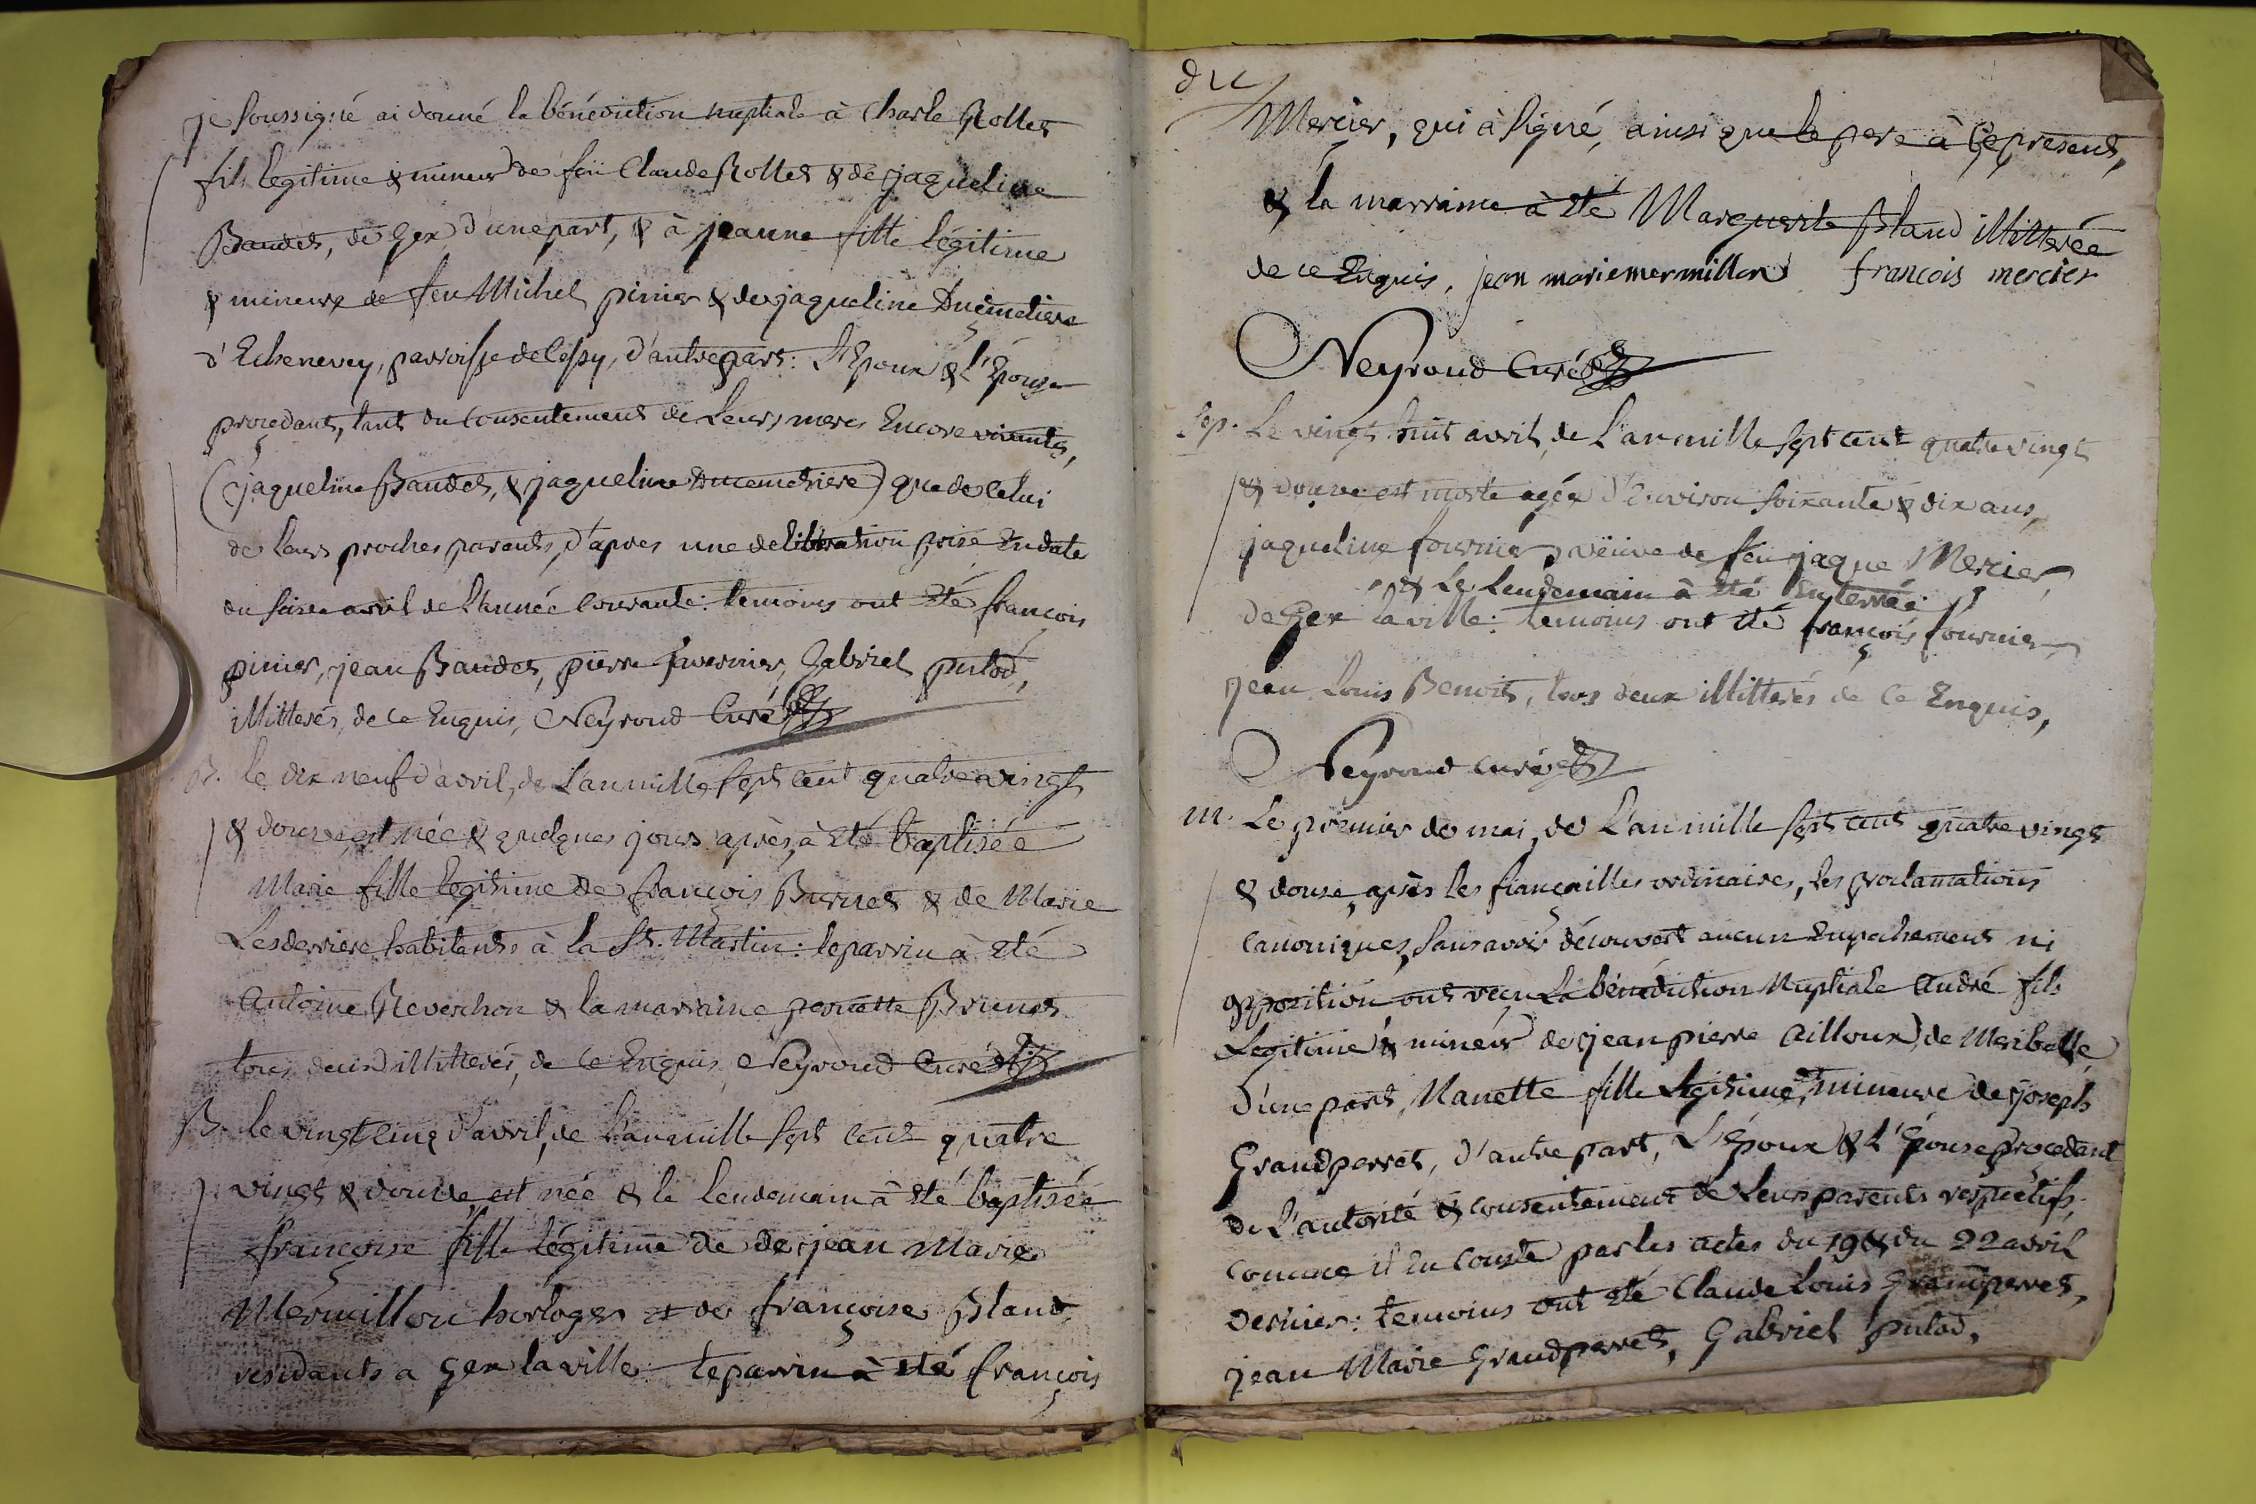 je soussigné ai donné la bénédiction nuptiale à Charle Rollet
fils légitime & mineur de feu Claude Rollet & de jaqueline
Baudet, de Gex d'une part, & à jeanne fille légitime
& mineure de feu Michel pinier & de jaqueline Ducimetiere
d'Echenevey, parroisse de Cessy, d'autre part: L'Epoux & l'Epouse
procedants, tant du consentement de Leurs meres Encore vivantes,
(jaqueline Baudet, & jaqueline Ducemetiere) que de Celui
de leurs proches parents, d'apres une deliberation prise En date
du seise avril de L'année Courante: temoins ont été françois
pinier, jean Baudet, pierre Gabriel
illitterés, de Ce Enquis, Neyroud Curé
B. le dix neuf d'avril, de L'an mille sept cent quatre vingt
& douze, est née & quelques jours après, à été baptisée
Marie fille legitime de françois Burnet & de Marie
Lesderriere habitants à la St. Martin: le parrin à été
Antoine Reverchon & la marraine pernette Brunet
tous deux illitterés, de Ce Enquis Neyroud Curé
B. le vingt cinq d'avril, de L'an mille sept cent quatre
vingt & douze est née & le lendemain à été baptisée
françoise fille légitime de de jean Marie
Mermillon horloger & de françoise Bland
residants a Gex la ville: le parrin à été françois
Mercier, qui à signé, ainsi que le pere à Ce present,
& la marraine à été Marguerite Bland illitterée
de ce Enquis, jean marie mermillon françois mercier
Neyroud Curé
Sep. Le vingt huit avril, de L'an mille sept cent quatre vingt
& douze est morte agée d'Environ soixante & dix ans,
jaqueline fournier, veüve de feu jaque Mercier
& Le Lendemain à été Enterrée
de Gex la ville: temoins ont été françois fournier
jean Louis Benoit, tous deux illitterés de Ce Enquis,
Neyroud curé
M. Le premier de mai, de L'an mille sept cent quatre vingt
& douze, après les fiançailles ordinaires, les proclamations
canoniques, sans avoir découvert aucun Empechement ni
opposition, ont reçu La bénédiction Nuptiale André fils
Légitime & mineur de jean pierre Ailloux, de
d'une part, Nanette fille Legitime & mineure de joseph
Grandperret, d'autre part, L'Epoux & L'Epouse procedant
de L'autorité & consentement de Leurs parents respectifs,
comme il En conste par les actes du 19 & du 22 avril
dernier: temoins ont été Claude Louis Grandperret,
jean Marie Grandperret, Gabriel